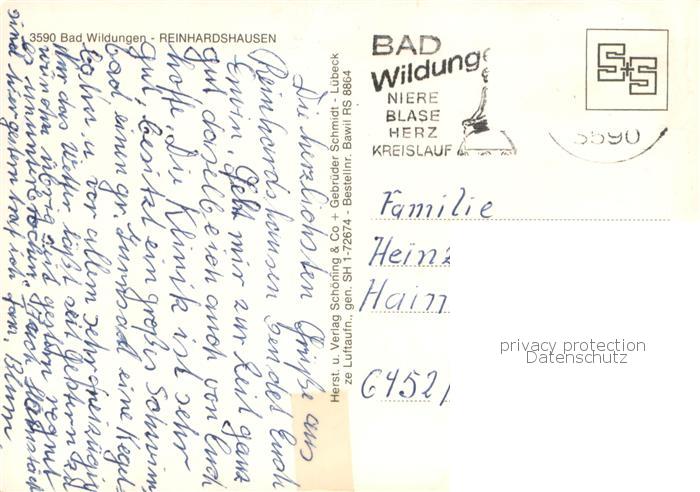 3590 Bad Wildungen - REINHARDSHAUSEN
Die herzlichsten Grüße aus
Reinhardshausen sendet Euch
Erwin. Geht mir zur Zeit ganz
gut dasselbe ich auch von Euch
hoffe. Die Klinik ist sehr
gut, besitzt ein großes Schwimm-
bad einen gr. Turnsaal eine Kegel-
bahn u. vor allem sehr
Nur das Wetter läßt seit gestern
wünschen übrig seit gestern regnet
es ununterbrochen. Nach
sind hier
Herst. u. Verlag Schöning & Co + Gebrüder Schmidt - Lübeck
ze Luftaufn., gen. SH 1-72674 - Bestellnr. Bawil RS 8864
BAD
Wildunge
NIERE
BLASE
HERZ
KREISLAUF
S+S
3590
Familie
Heinz
Haim
6452/
privacy protection
Datenschutz